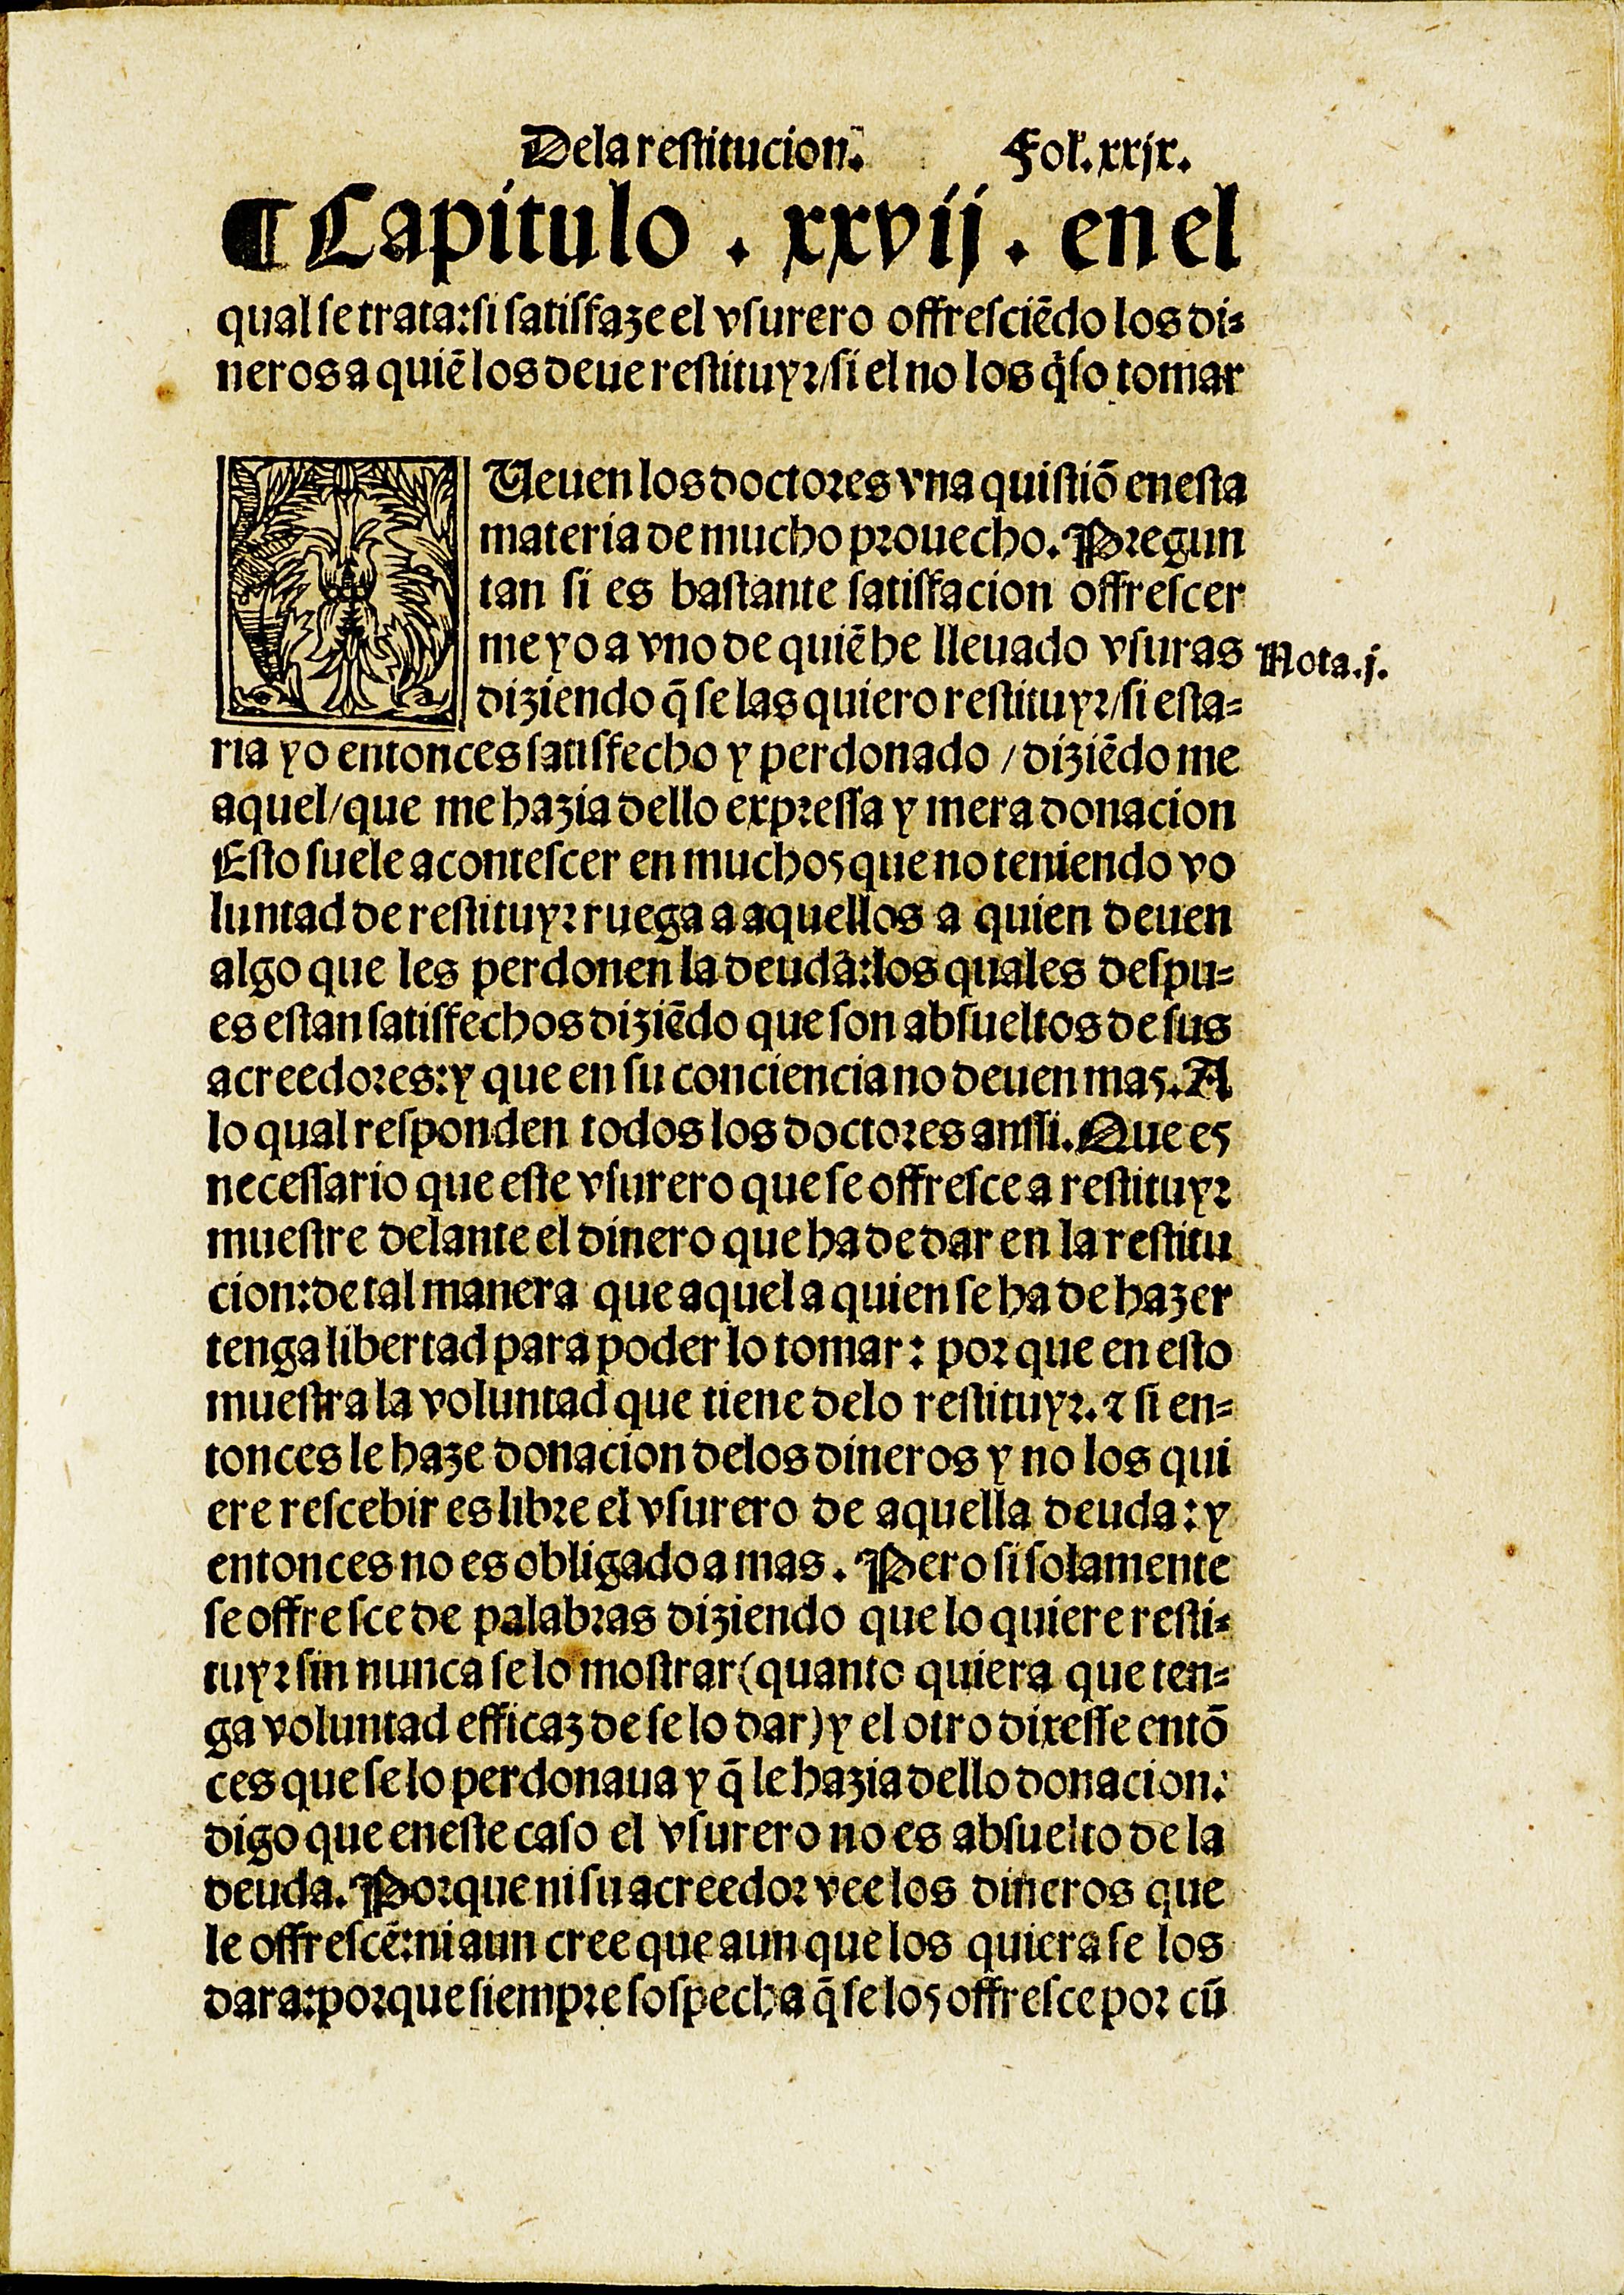 Dela restitucion. Fol. xxix.
¶ Capitulo . xxvij . en el
qual se trata: si satisfaze el vsurero offresciēdo los di=
neros a quiē los deue restituyr / si el no los q̇so tomar
Ueuen los doctores vna quistiō enesta
materia de mucho prouecho. Pregun
tan si es bastante satisfacion offrescer
me yo a vno de quiē he lleuado vsuras
Nota.j.
diziendo q̄ se las quiero restituyr / si esta=
ria yo entonces satisfecho y perdonado / diziēdo me
aquel / que me hazia dello expressa y mera donacion
Esto suele acontescer en muchos que no teniendo vo
luntad de restituyr ruega a aquellos a quien deuen
algo que les perdonen la deuda: los quales despu=
es estan satisfechos diziēdo que son absueltos de sus
acreedores: y que en su conciencia no deuen mas. A
lo qual responden todos los doctores anssi. Que es
necessario que este vsurero que se offresce a restituyr
muestre delante el dinero que ha de dar en la restitu
cion: de tal manera que aquel a quien se ha de hazer
tenga libertad para poder lo tomar: por que en esto
muestra la voluntad que tiene delo restituyr. ⁊ si en=
tonces le haze donacion delos dineros y no los qui
ere rescebir es libre el vsurero de aquella deuda: y
entonces no es obligado a mas. Pero si solamente
se offresce de palabras diziendo que lo quiere resti=
tuyr sin nunca se lo mostrar (quanto quiera que ten=
ga voluntad efficaz de se lo dar) y el otro dixesse entō
ces que se lo perdonaua y q̄ le hazia dello donacion:
digo que eneste caso el vsurero no es absuelto de la
deuda. Porque ni su acreedor vee los dineros que
le offrescē: ni aun cree que aun que los quiera se los
dara: porque siempre sospecha q̄ se los offresce por cū